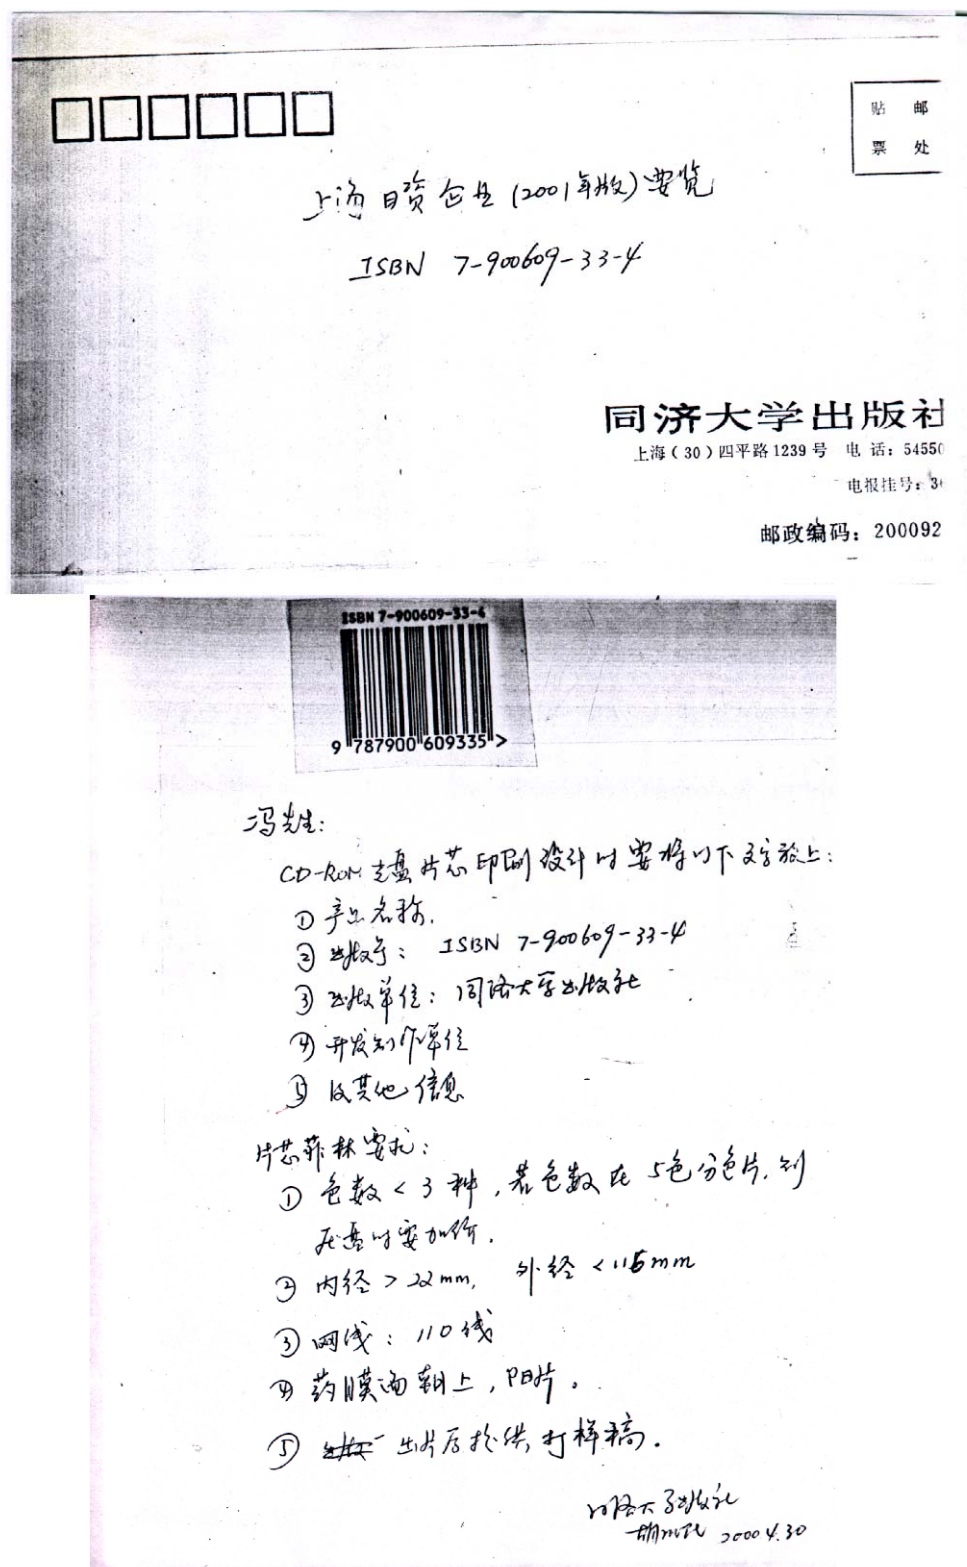 贴 邮
票 处
上海日资企业(2001年版)要览
ISBN 7-900609-33-4
同济大学出版社
上海(30)四平路1239号 电 话: 54550
电报挂号: 3
邮政编码: 200092
ISBN 7-900609-33-4
9 787900 609335 >
冯先生:
CD-ROM 光盘片芯印刷设计时要将以下文字放上:
① 产品名称.
② 出版号: ISBN 7-900609-33-4
③ 出版单位: 同济大学出版社
④ 开发制作单位
⑤ 及其他信息
片芯菲林要求:
① 色数<3种,若色数在5色分色片,则
压盘时要加价.
② 内径>22mm, 外径<116mm
③ 网线: 110线
④ 药膜面朝上,阳片。
⑤ 出片后提供打样稿.
同济大学出版社
2000 4.30